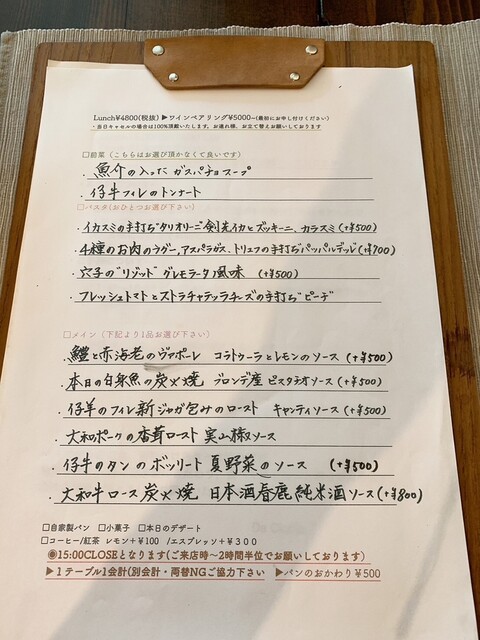 Lunch¥4800(税抜) ▶ワインペアリング¥5000~(最初にお申し付けください)
・当日キャンセルの場合は100%頂戴いたします。お連れ様、お立て替えお願いしております
□前菜（こちらはお選び頂かなくて良いです）
・魚介の入ったガスパチョスープ
・仔牛フィレのトンナート
□パスタ(おひとつお選び下さい)
・イカスミの手打ち"タリオリーニ"剣先イカとズッキーニ、カラスミ(+¥500)
・4種のお肉のラグー,アスパラガス、トリュフの手打ち"パッパルデッレ"(+¥700)
・穴子の"リゾット"グレモラータ風味 (+¥500)
・フレッシュトマトとストラチャテッラチーズの手打ち"ピーチ"
□メイン（下記より1品お選び下さい）
・鱧と赤海老のヴァポーレ コラトゥーラとレモンのソース(+¥500)
・本日の白身魚の炭火焼 ブロンテ産ピスタチオソース(+¥500)
・仔羊のフィレ新ジャガ包みのロースト キャンティソース(+¥500)
・大和ポークの香草ロースト 実山椒ソース
・仔牛のタンのボッリート 夏野菜のソース (+¥500)
・大和牛ロース炭火焼 日本酒春鹿純米酒ソース(+¥800)
□自家製パン □小菓子 □本日のデザート
□コーヒー/紅茶 レモン+¥100 /エスプレッソ+¥300
◉15:00CLOSEとなります(ご来店時〜2時間半位でお願いしております)
▶1テーブル1会計(別会計・両替NGご協力下さい ▶パンのおかわり¥500